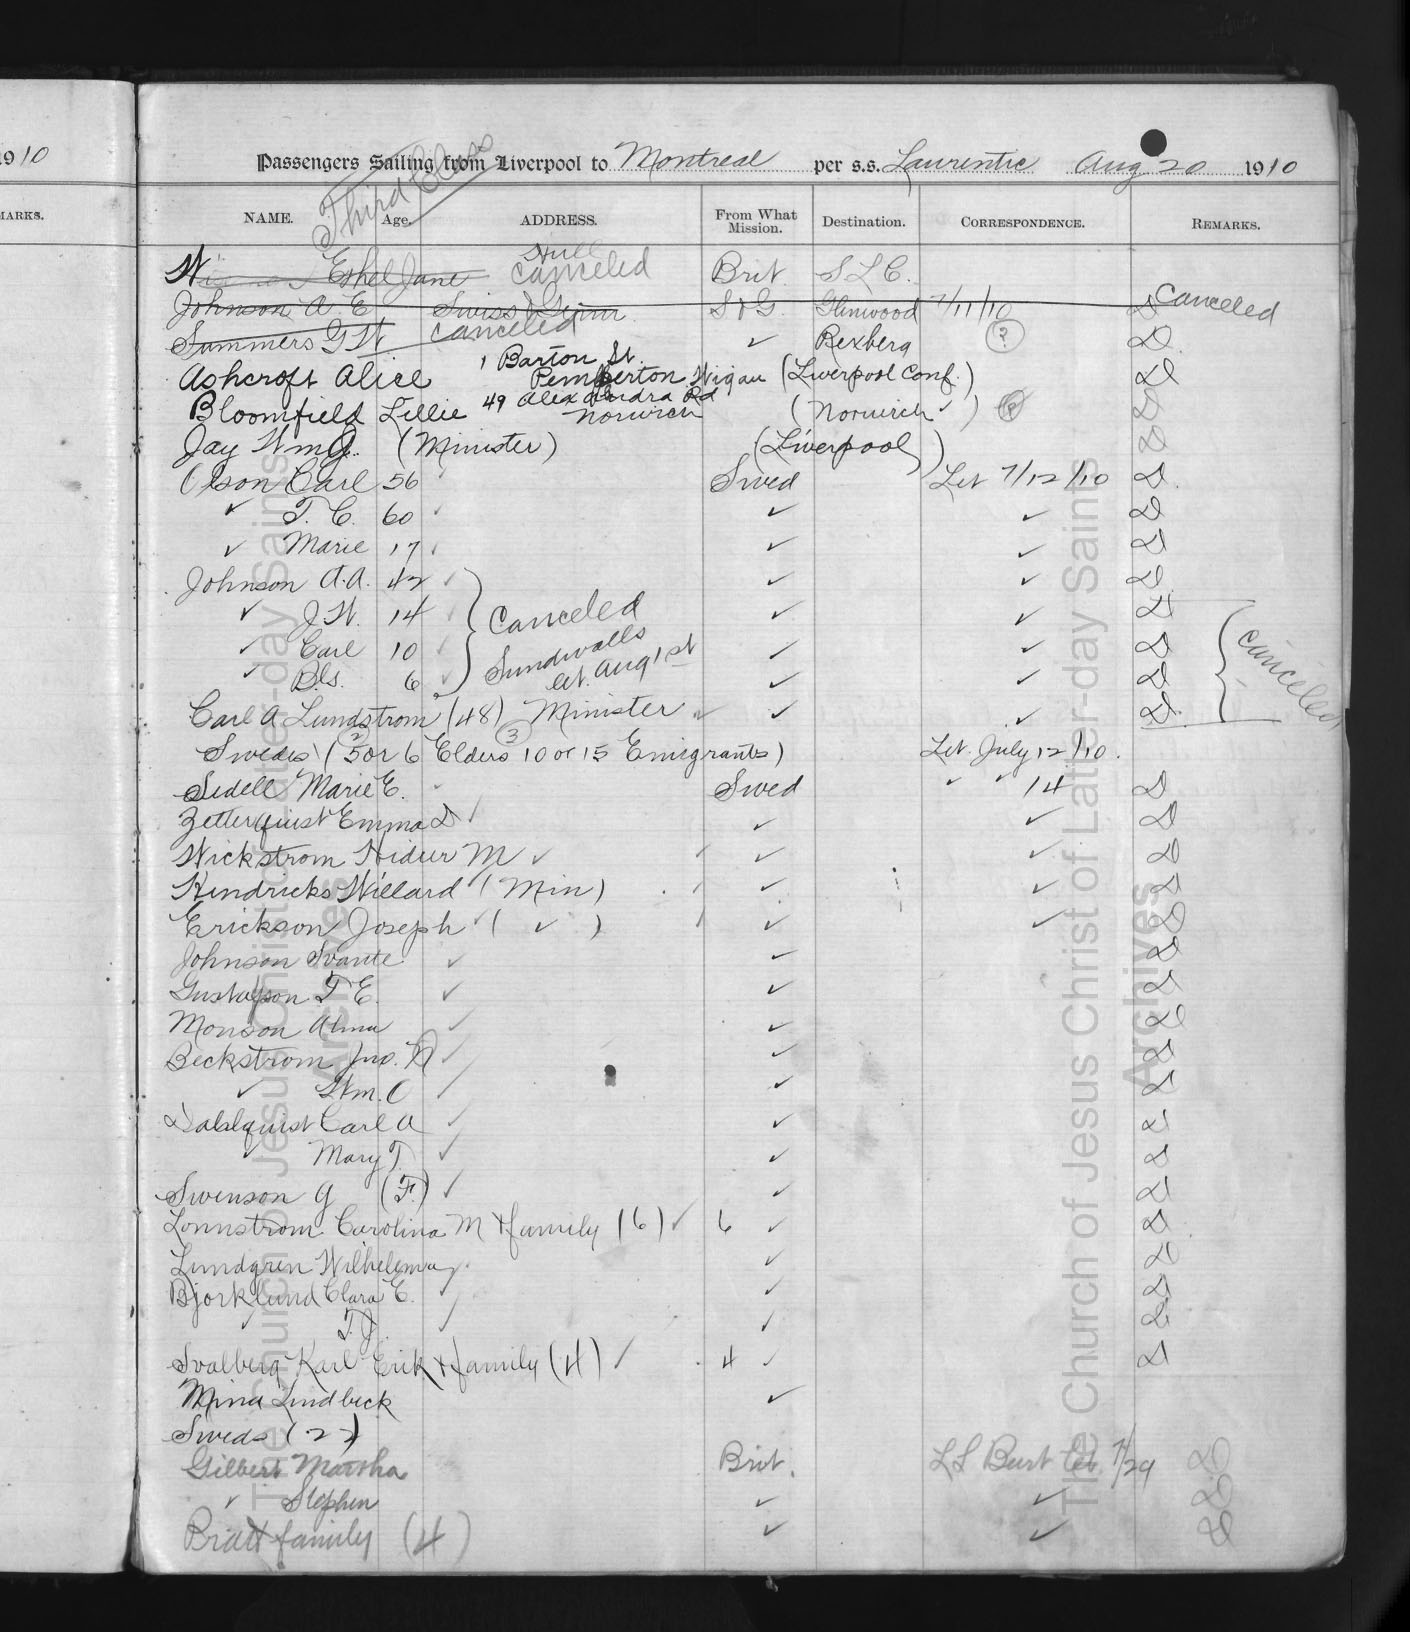 1910
MARKS.
Third Class
Passengers Sailing from Liverpool to Montreal per s.s. Laurentic Aug 20 1910
NAME. Age. ADDRESS. From What Mission. Destination. CORRESPONDENCE. REMARKS.
Hull
Ethel Jane canceled Brit. S L C.
Johnson A. E. Swiss & Germ S & G. Glenwood 7/11/10 D Canceled
Summers G W canceled ✓ Rexberg ? D.
1 Barton St.
Ashcroft Alice Pemberton Wigan (Liverpool Conf.) D
49 Alexandra Rd
Bloomfield Lillie Norwich (Norwich ✓) D
Jay Wm G. (Minister) (Liverpool) D
Olson Carl 56 ✓ Swed Let 7/12/10 D.
✓ T. C. 60 ✓ ✓ ✓ D
✓ Marie 17 ✓ ✓ ✓ D
Johnson A.A. 42 ✓ ✓ ✓ D
✓ J W. 14 ✓ Canceled ✓ ✓ D
✓ Carl 10 ✓ Sundwalls ✓ ✓ D canceled
✓ Bls. 6 ✓ let. Aug 1st ✓ ✓ D
Carl A Lundstrom (48) Minister ✓ ✓ ✓ D
2 3
Swedes (5 or 6 Elders 10 or 15 Emigrants) Let. July 12/10.
Sedell Marie E. ✓ Swed ✓ ✓ 14 D
Zetterquist Emma D ✓ ✓ ✓ D
Wickstrom Hidur M ✓ ✓ ✓ D
Kendricks Willard (Min) ✓ ✓ D
Erickson Joseph ✓ ( ✓ ) ✓ ✓ D
Johnson Svante ✓ ✓ D
Gustafson T E. ✓ ✓ D
Monson Alma ✓ ✓ D
Beckstrom Jno. N ✓ ✓ D
✓ Wm. C ✓ ✓ D
Dahlquist Carl A ✓ ✓ D
✓ Mary T. ✓ ✓ D
Swenson G (F.) ✓ ✓ D
Lonnstrom Carolina M & family (6) ✓ 6 ✓ D
Lundgren Wilhelema ✓ ✓ D
Bjorklund Clara E. ✓ ✓ D
✓ T. J. ✓ ✓ D
Svalberg Karl Erik & family (4) ✓ 4 ✓ D
Mina Lindbeck ✓
Sweds (22)
Gilbert Martha Brit. L S Burt let 7/29 D
✓ Stephen ✓ ✓ D
Pratt family (4) ✓ ✓ D
The Church of Jesus Christ of Latter-day Saints
Archives
The Church of Jesus Christ of Latter-day Saints
Archives